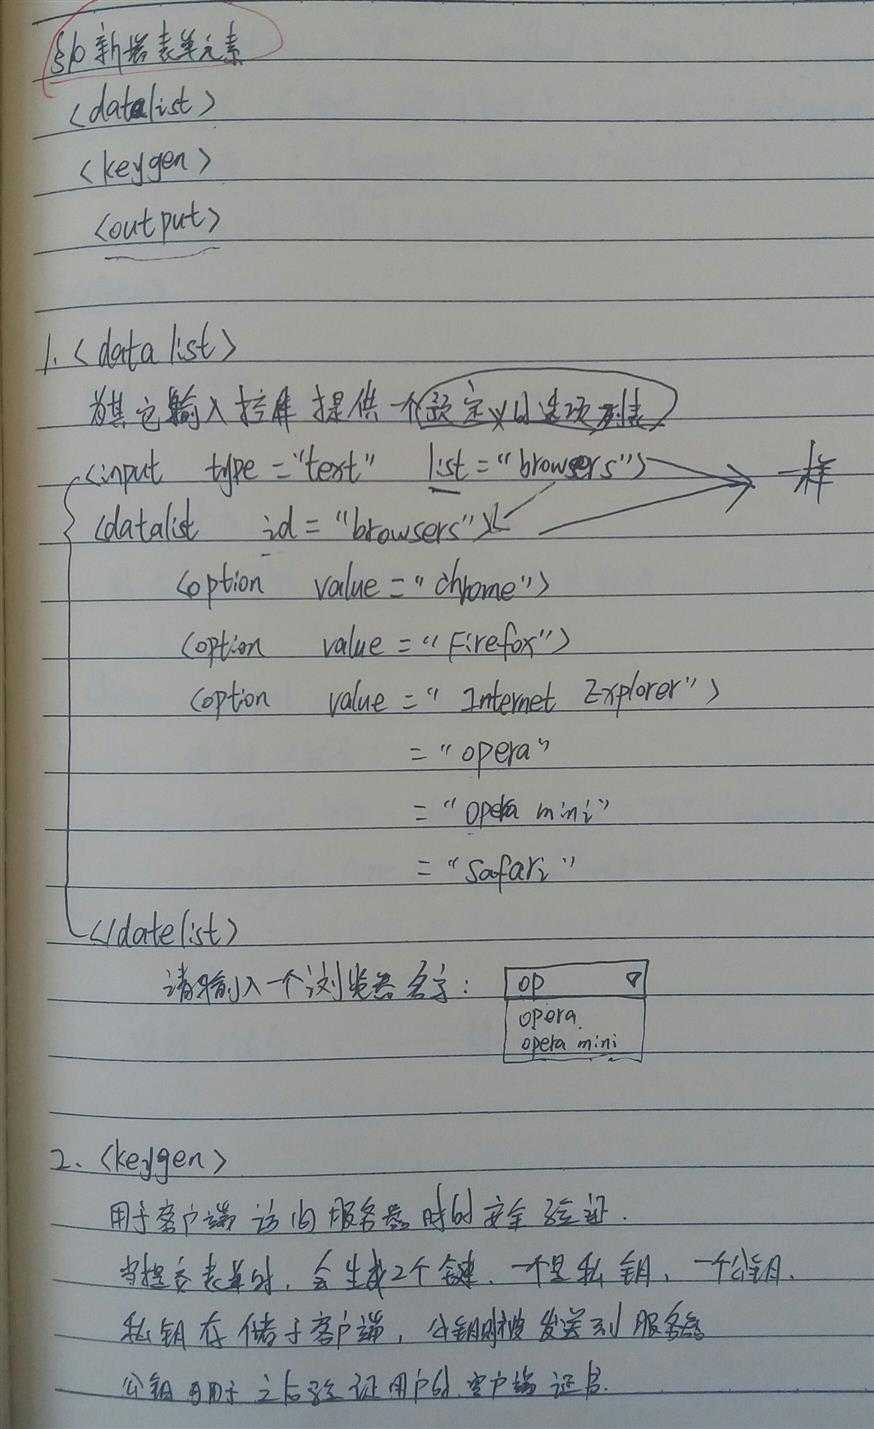 §10 新增表单元素
<datalist>
<keygen>
<output>
1. <datalist>
为其它输入控件提供一个预定义的选项列表
<input type="text" list="browsers"> 一样
<datalist id="browsers">
<option value="Chrome">
<option value="Firefox">
<option value="Internet Explorer">
="opera"
="opera mini"
="Safari"
</datelist>
请输入一个浏览器名字: op
opera
opera mini
2. <keygen>
用于客户端访问服务器时的安全验证.
当提交表单时, 会生成2个键, 一个是私钥, 一个公钥.
私钥存储于客户端, 公钥则被发送到服务器
公钥可用于之后验证用户的客户端证书.